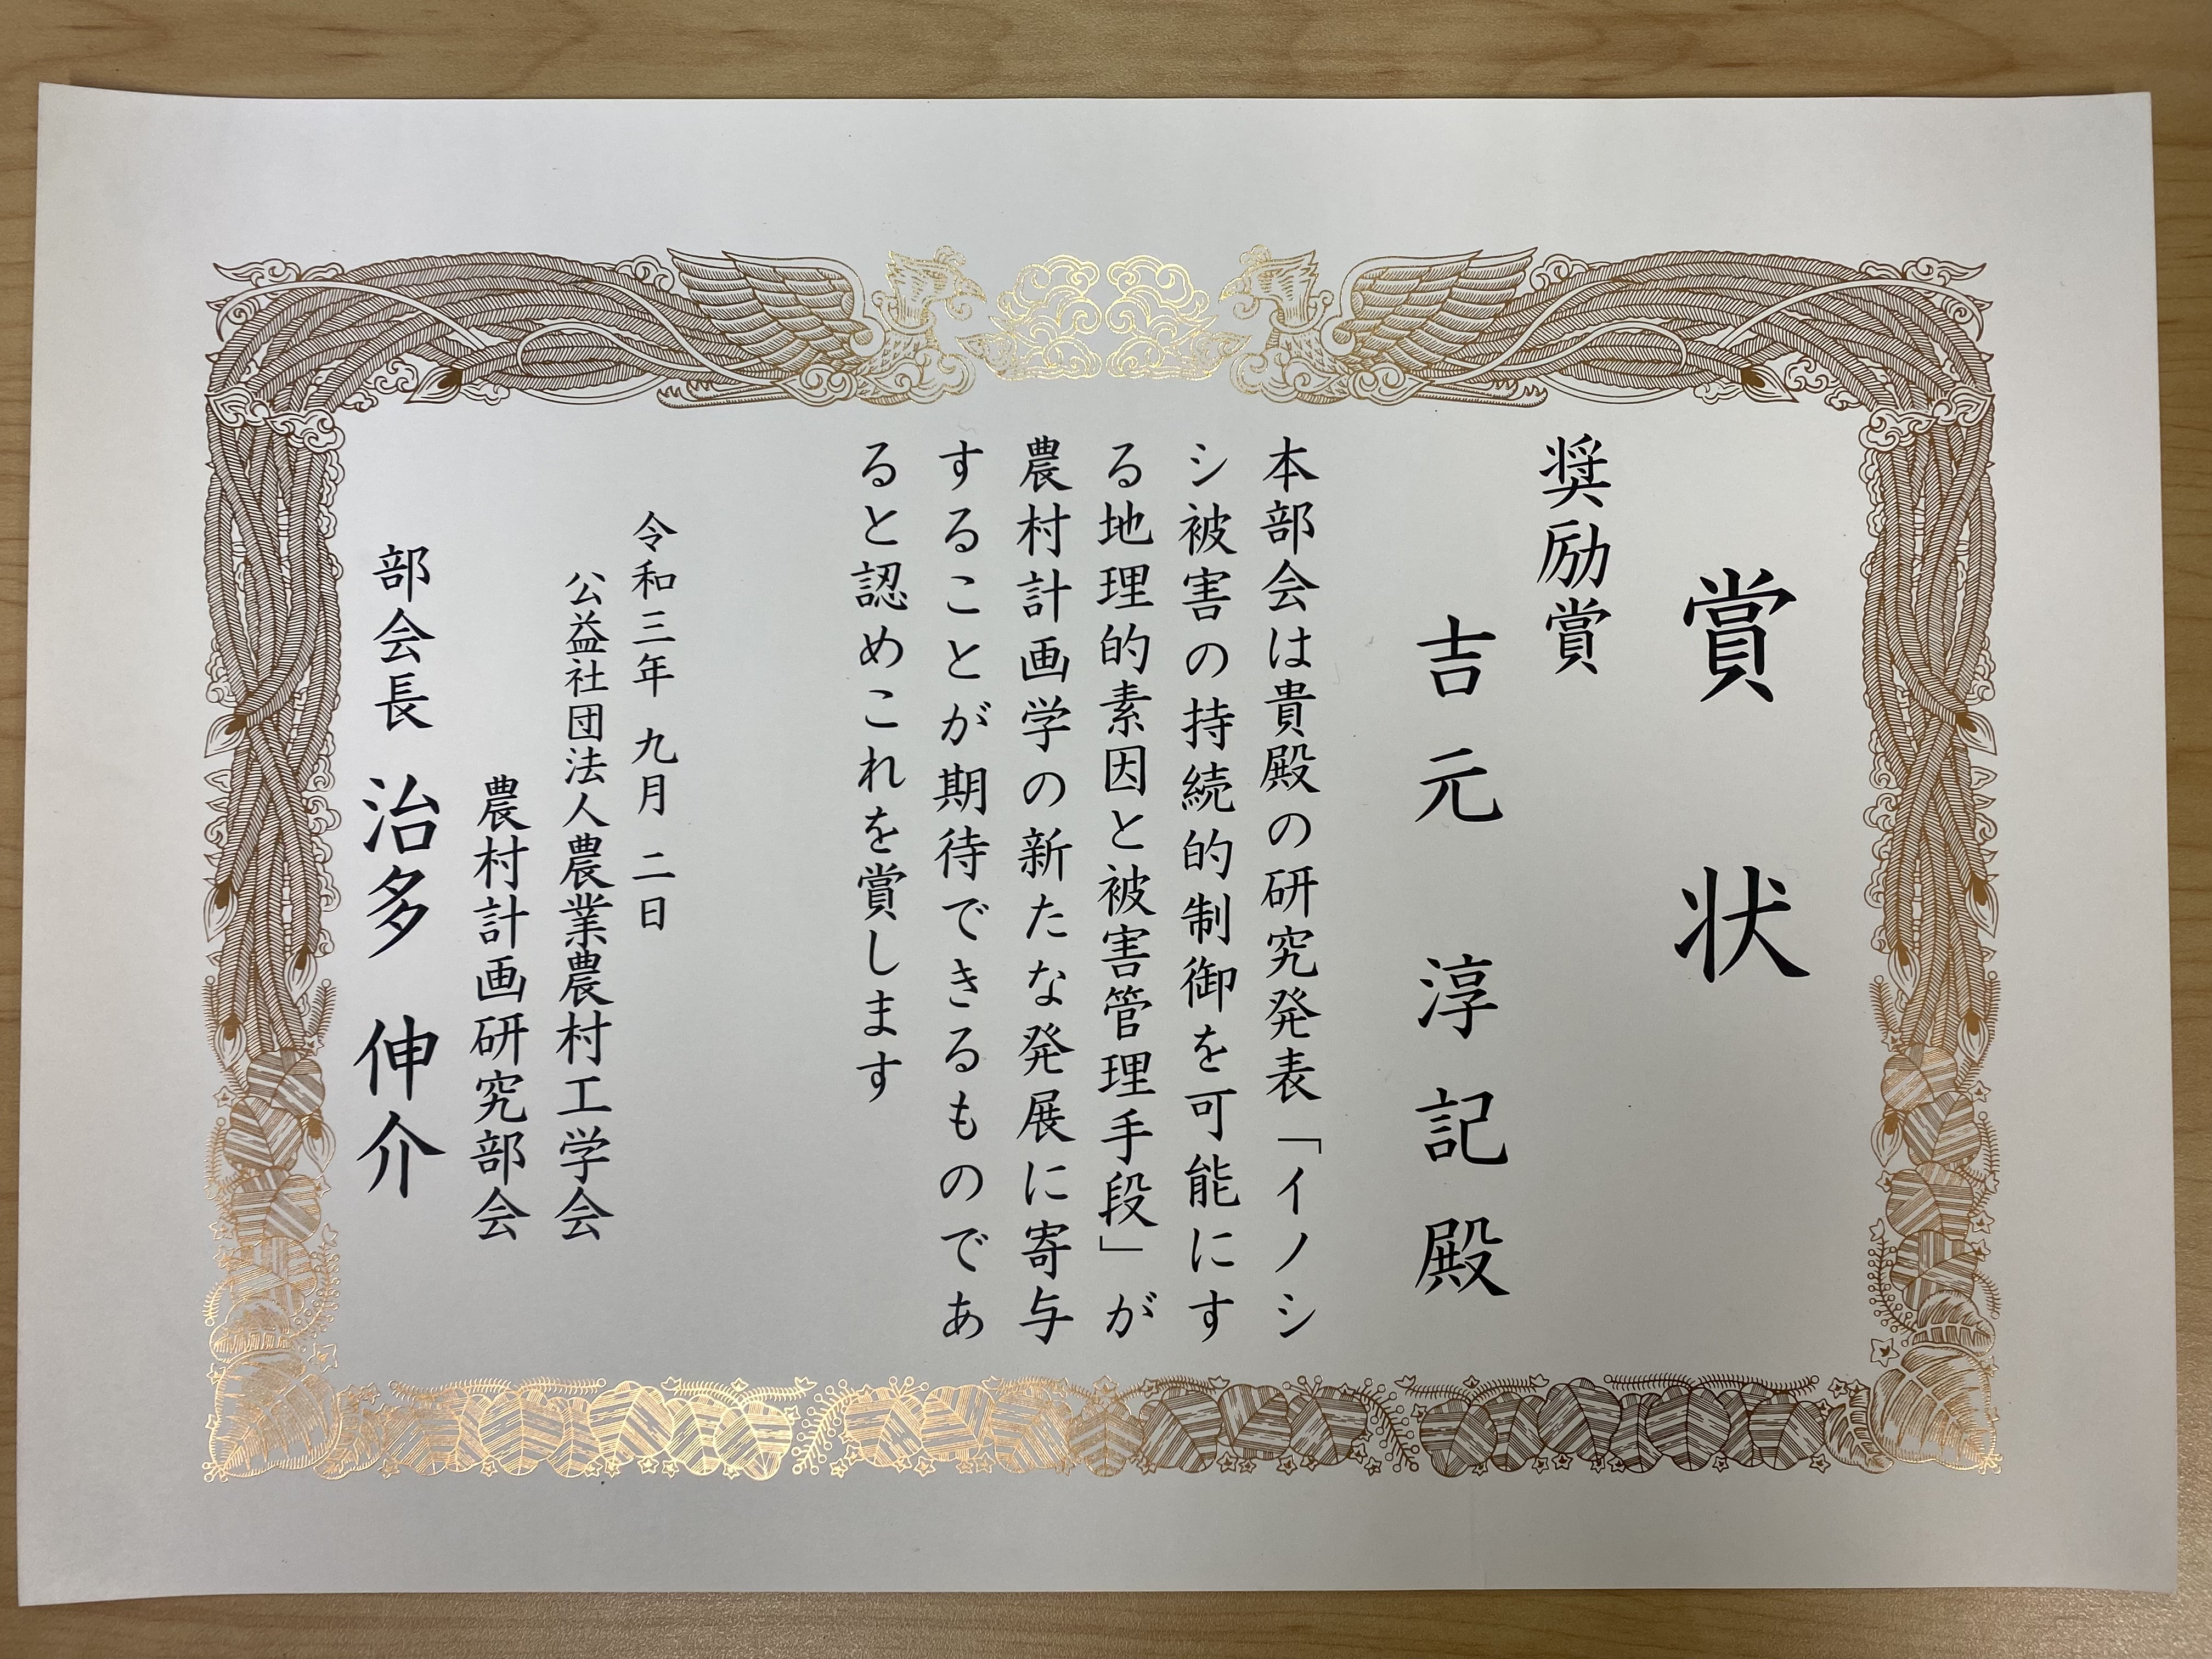 賞状
奨励賞
吉元 淳記殿
本部会は貴殿の研究発表「イノシ
シ被害の持続的制御を可能にす
る地理的素因と被害管理手段」が
農村計画学の新たな発展に寄与
することが期待できるものであ
ると認めこれを賞します
令和三年 九月 二日
公益社団法人農業農村工学会
農村計画研究部会
部会長 治多 伸介